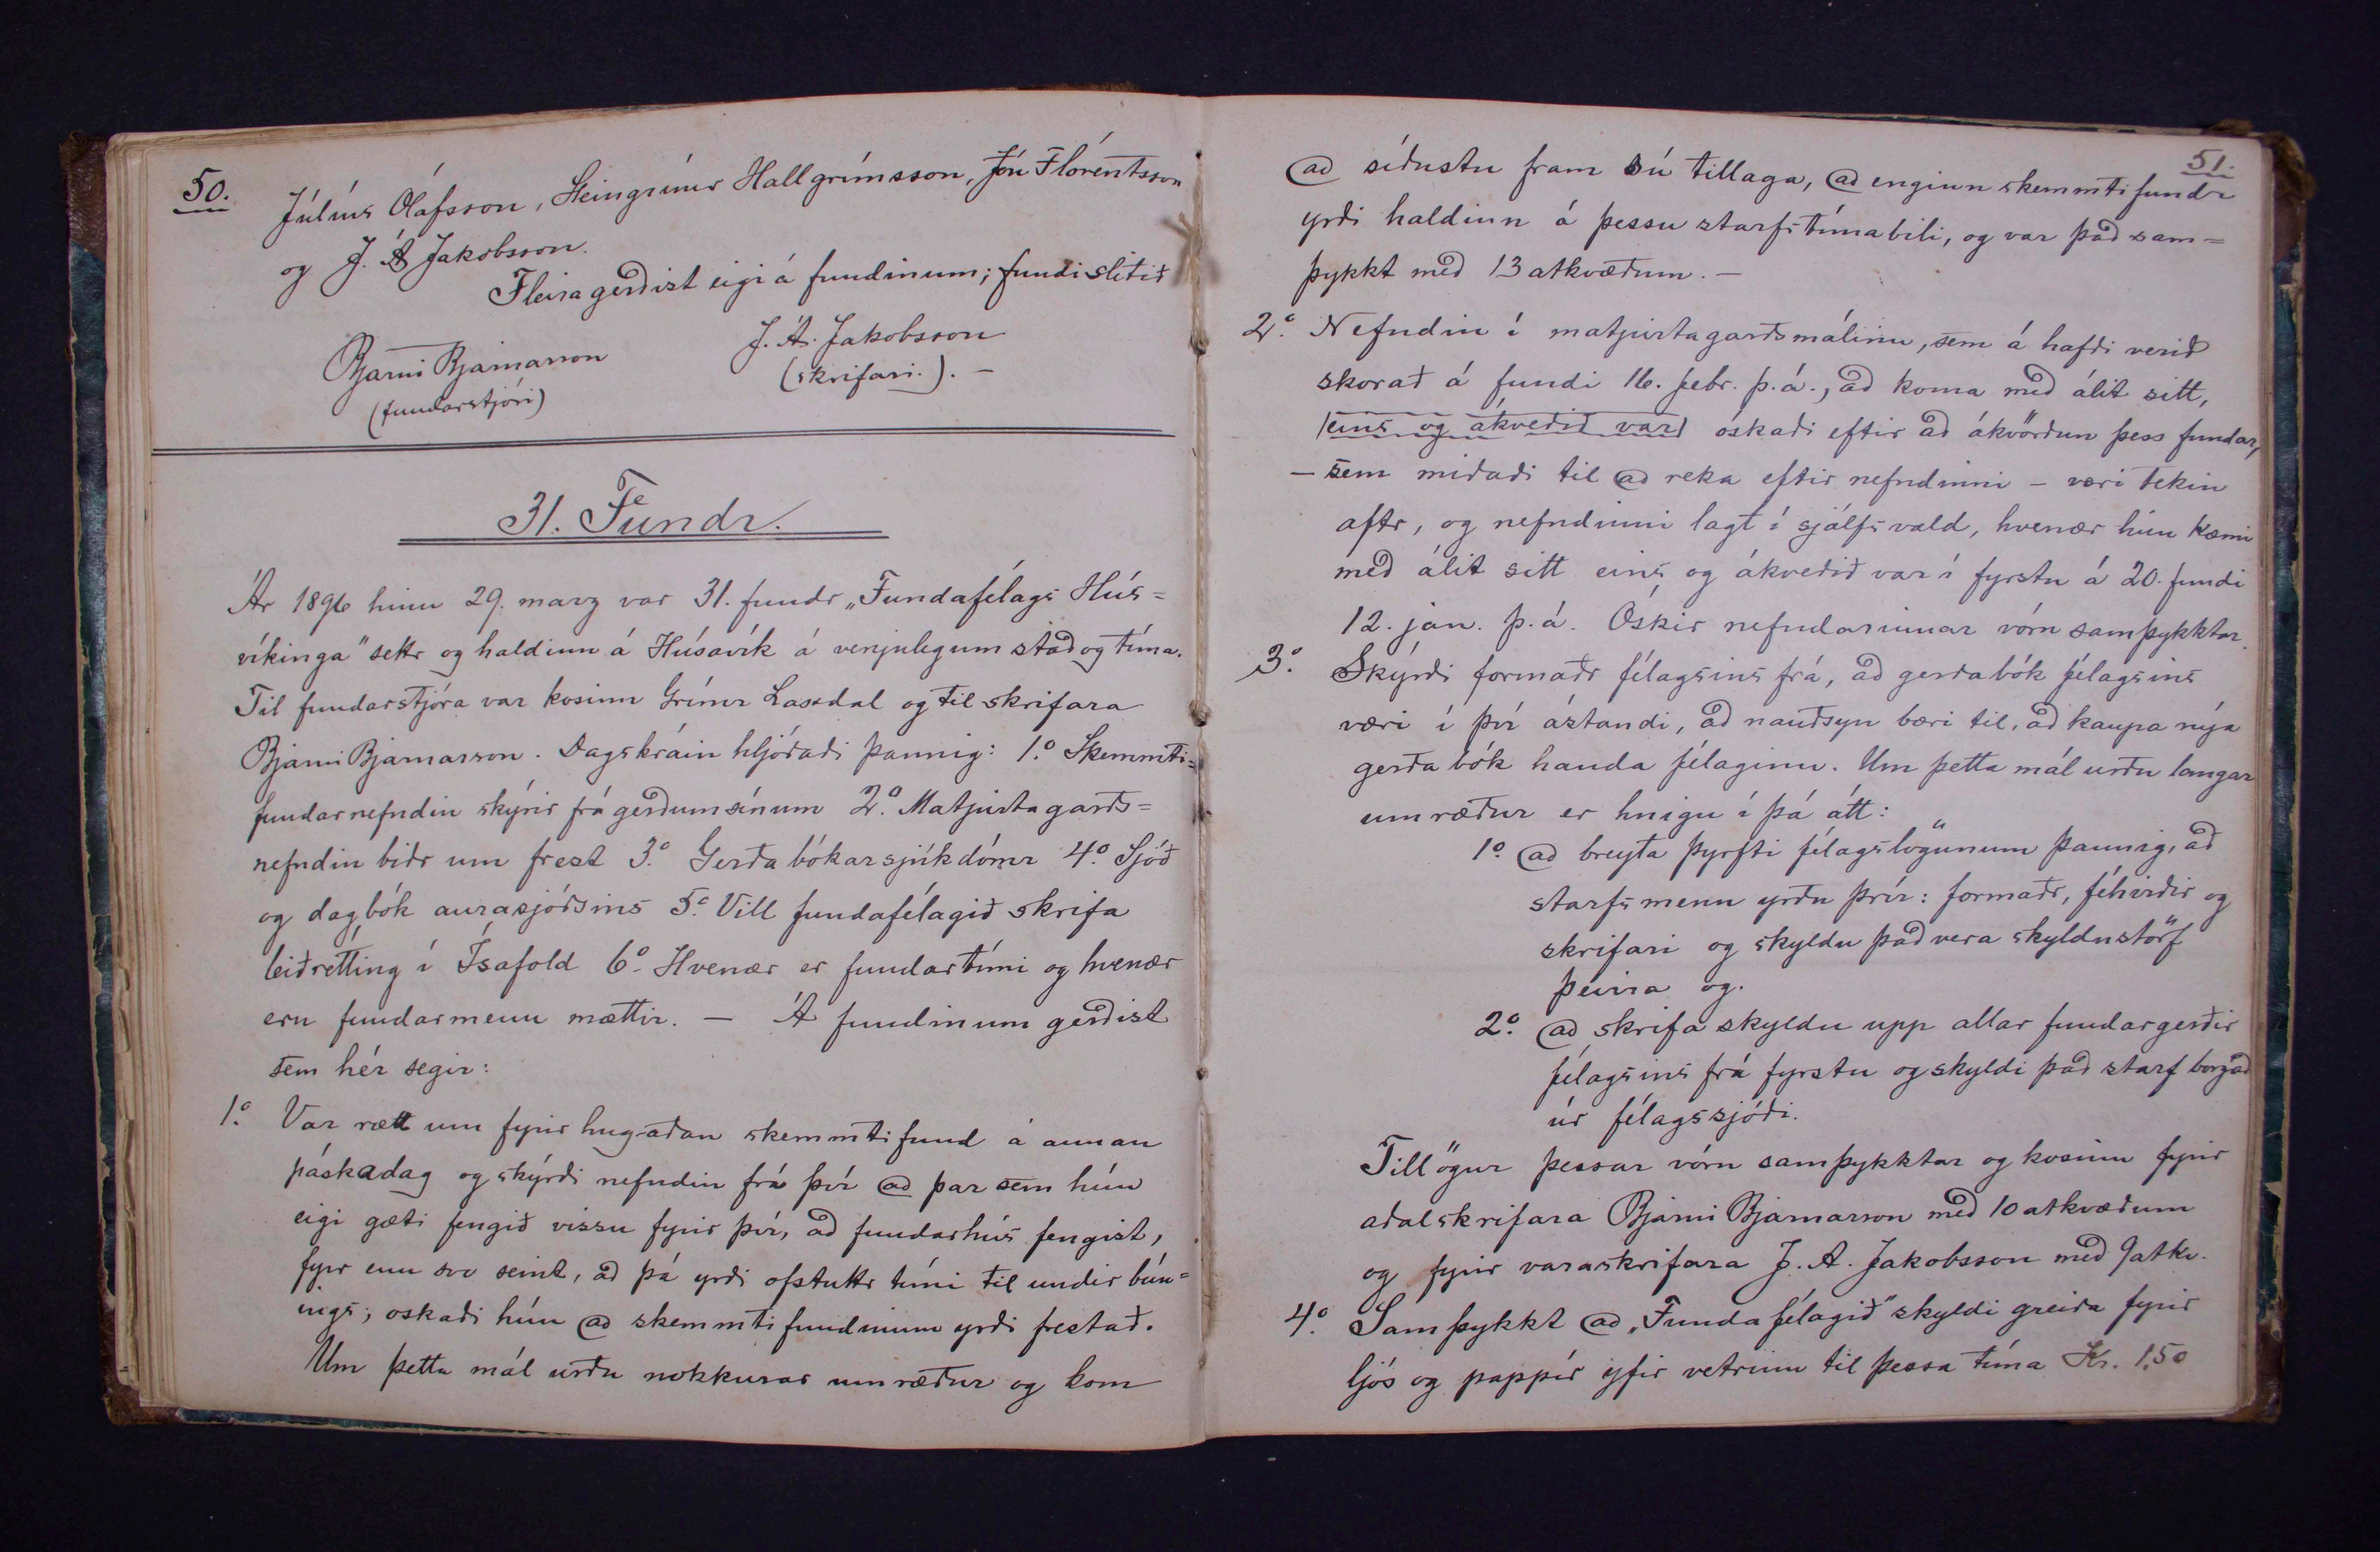 50.
Júlíus Ólafsson, Steingrímr Hallgrímsson, Jón Flórentsson
og J. A Jakobsson.
Fleira gerðist eigi á fundinum; fundi slitið
Bjarni Bjarnarson J. A. Jakobsson
(fundarstjóri) (skrifari.). –
31. Fundr.
Ár 1896 hinn 29. marz var 31. fundr „Fundafélags Hús=
víkinga" settr og haldinn á Húsavík á venjulegum stað og tíma.
Til fundarstjóra var kosinn Grímr Laxdal og til skrifara
Bjarni Bjarnarson. Dagskráin hljóðaði þannig: 1.º Skemmti=
fundarnefndin skýrir frá gerðum sínum 2.º Matjurtagarðs=
nefndin biðr um frest 3.º Gerðabókarsjúkdómr 4.º Sjóð
og dagbók aurasjóðsins 5.º Vill fundafélagið skrifa
leiðrétting í Ísafold 6.º Hvenær er fundartími og hvenær
eru fundarmenn mættir. – Á fundinum gerðist
sem hér segir:
1.º Var rætt um fyrirhugaðan skemmtifund á annan
páskadag og skýrði nefndin frá því að þar sem hún
eigi gæti fengið vissu fyrir því, að fundarhús fengist,
fyrr enn svo seint, að þá yrði ofstuttr tími til undirbún=
ings; oskaði hún að skemmtifundinum yrði frestað.
Um þetta mál urðu nokkurar umræður og kom
51.
að síðustu fram sú tillaga, að enginn skemmtifundr
yrði haldinn á þessu starfstímabili, og var það sam=
þykkt með 13 atkvæðum. –
2.º Nefndin í matjurtagarðsmálinu, sem á hafði verið
skorað á fundi 16. febr. þ.á., að koma með álit sitt,
/eins og ákveðið var/ óskaði eftir að ákvörðun þess fundar,
– sem miðaði til að reka eftir nefndinni – væri tekin
aftr, og nefndinni lagt í sjálfsvald, hvenær hún kæmi
með álit sitt eins og ákveðið var í fyrstu á 20. fundi
12. jan. þ.á. Óskir nefndarinnar vóru samþykktar.
3.º Skýrði formaðr félagsins frá, að gerðabók félagsins
væri í því ástandi, að nauðsyn bæri til, að kaupa nýja
gerðabók handa félaginu. Um þetta mál urðu langar
umræður er hnigu í þá átt:
1.º að breyta þyrfti félagslögunum þannig, að
starfsmenn yrðu þrír: formaðr, féhirðir og
skrifari og skyldu það vera skyldustörf
þeirra og.
2.º að skrifa skyldu upp allar fundargerðir
félagsins frá fyrstu og skyldi það starf borgað
úr félagssjóði.
Tillögur þessar vóru samþykktar og kosinn fyrir
aðalskrifara Bjarni Bjarnarson með 10 atkvæðum
og fyrir varaskrifara J. A. Jakobsson með 9 atkv.
4.º Samþykkt að „Fundafélagið" skyldi greiða fyrir
ljós og pappír yfir vetrinn til þessa tíma Kr. 1,50